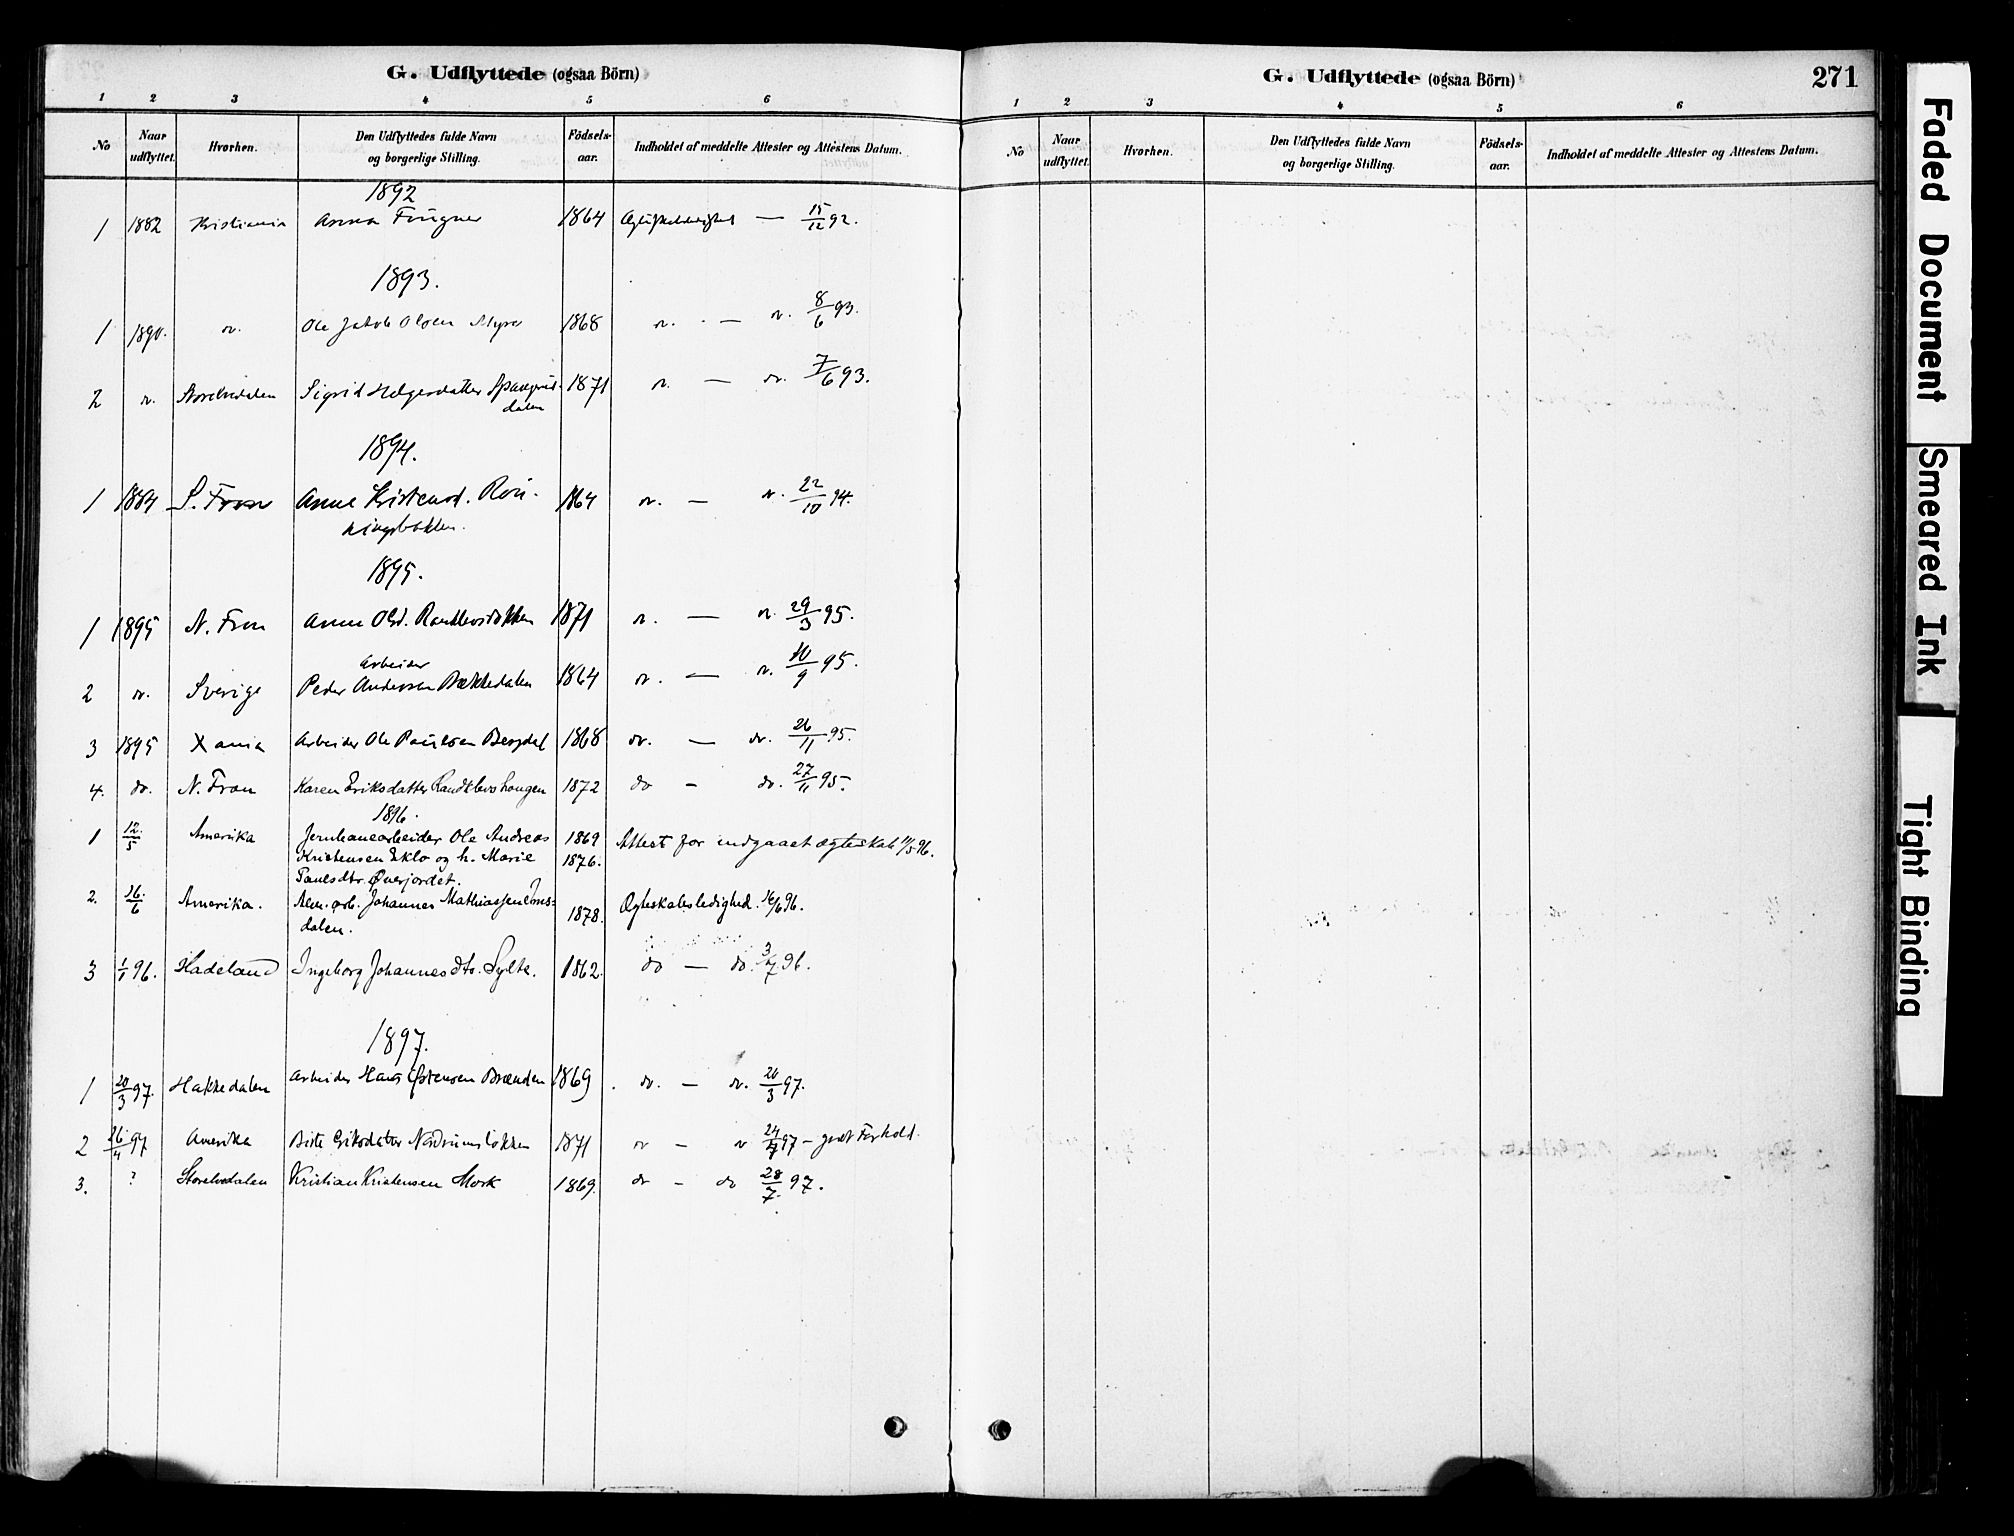 G. Udflyttede (ogsaa Börn)
1 2 3 4 5 6
No Naar udflyttet. Hvorhen. Den Udflyttedes fulde Navn og borgerlige Stilling. Födsels-aar. Indholdet af meddelte Attester og Attestens Datum.
1892
1 1882 Kristiania Anna Fougner 1864 — 15/12 92.
1893.
1 1890. do. Ole Jakob Olsen Myre 1868 do. — do. 8/6 93.
2 do. Storelvedalen Sigrid Helgesdatter 1871 do. — do. 7/6 93.
dalen
1894.
1 1884 S. Fron Anne Kristensd. Rön- 1864 do. — do. 22/10 94.
ningsbakken.
1895.
1 1895 N. Fron Anne Olsd. Randklevsløkken 1871 do. — do. 29/3 95.
Arbeider
2 do. Sverige Peder Andersen Bækkedalen 1864 do. — do. 10/9 95.
3 1895 Xania Arbeider Ole Paulsen Bergdal 1868 do. — do. 26/11 95.
4. do. N. Fron Karen Eriksdatter Randklevshaugen 1872 do — do. 27/11 95.
1896.
1 12/5 Amerika Jernbanearbeider Ole Andreas 1869 Attest for indgaaet Ægteskab 11/5 96.
Kristensen Eklo og h. Marie 1876.
Paulsdtr. Øverjordet.
2. 26/6 Amerika. arb. Johannes Mathiassen Ims- 1878. Ægteskabsledighed. 16/6 96.
dalen.
3 1/1 96. Hadeland Ingeborg Johannesdtr. Sylte. 1862. do — do. 3/7 96.
1897.
1 20/3 97. Hakkedalen Arbeider Hans Østensen Brænden 1869 do. — do. 20/3 97.
2 26/4 97 Amerika Birte Eriksdatter Nordrumsløkken 1871 do — do 97 – godt Forhold.
3. ? Storelvedalen Kristian Kristensen Mork 1869. do — do 28/7. 97.
G. Udflyttede (ogsaa Börn)
271
1 2 3 4 5 6
No Naar udflyttet. Hvorhen. Den Udflyttedes fulde Navn og borgerlige Stilling. Födsels-aar. Indholdet af meddelte Attester og Attestens Datum.
Faded Document
Smeared Ink
Tight Binding